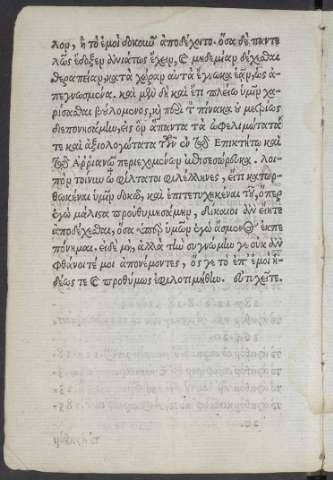 λον, ἢ τὸ ἐμοὶ δοκοῦν ἀποδέχοιτο. ὅσα δὲ παντε
λῶς ἔδοξεν ἀνιάτως ἔχειν, καὶ μεδεμίαν δέχεσθαι
θεραπείαν, κατὰ χώραν αὐτὰ ἔγωγε εἴασα, ὡς ἀ-
πεγνωσμένα. καὶ μὴν δὴ καὶ ἔτι πλείω ὑμῖν χα-
ρίσασθαι βουλόμενος, καὶ πίνακα
διεπονησάμην, εἰς ὃν ἅπαντα τὰ ὠφελιμώτατά
τε καὶ ἀξιολογώτατα τῶν ἐν τῷ Ἐπικτήτῳ καὶ
τῷ Ἀρριανῷ περιεχομένων λοι-
πὸν τοίνυν ὦ φίλτατοι φιλέλληνες, εἴτι κατωρ-
θωκέναι ὑμῖν δοκῶ, καὶ ἐπιτετυχηκέναι τοῦ, ὅπερ
ἐγὼ μάλιστα προὐθυμησάμην, δίκαιοι ἂν εἴητε
ἀποδέχεσθαι, ὅσα ὑπὲρ ὑμῶν ἐγὼ ἄσμενος ἐκπε
πόνημαι. εἰ δὲ μὴ, ἀλλὰ τὴν συγνώμην γε οὐκ ἂν
φθάνοιτέ μοι ἀπονέμοντες, ὅς γε τὸ ἐπ' ἐμοὶ ἡ-
δέως τε καὶ προθύμως ἐφιλοτιμήθην. εὐτυχεῖτε.